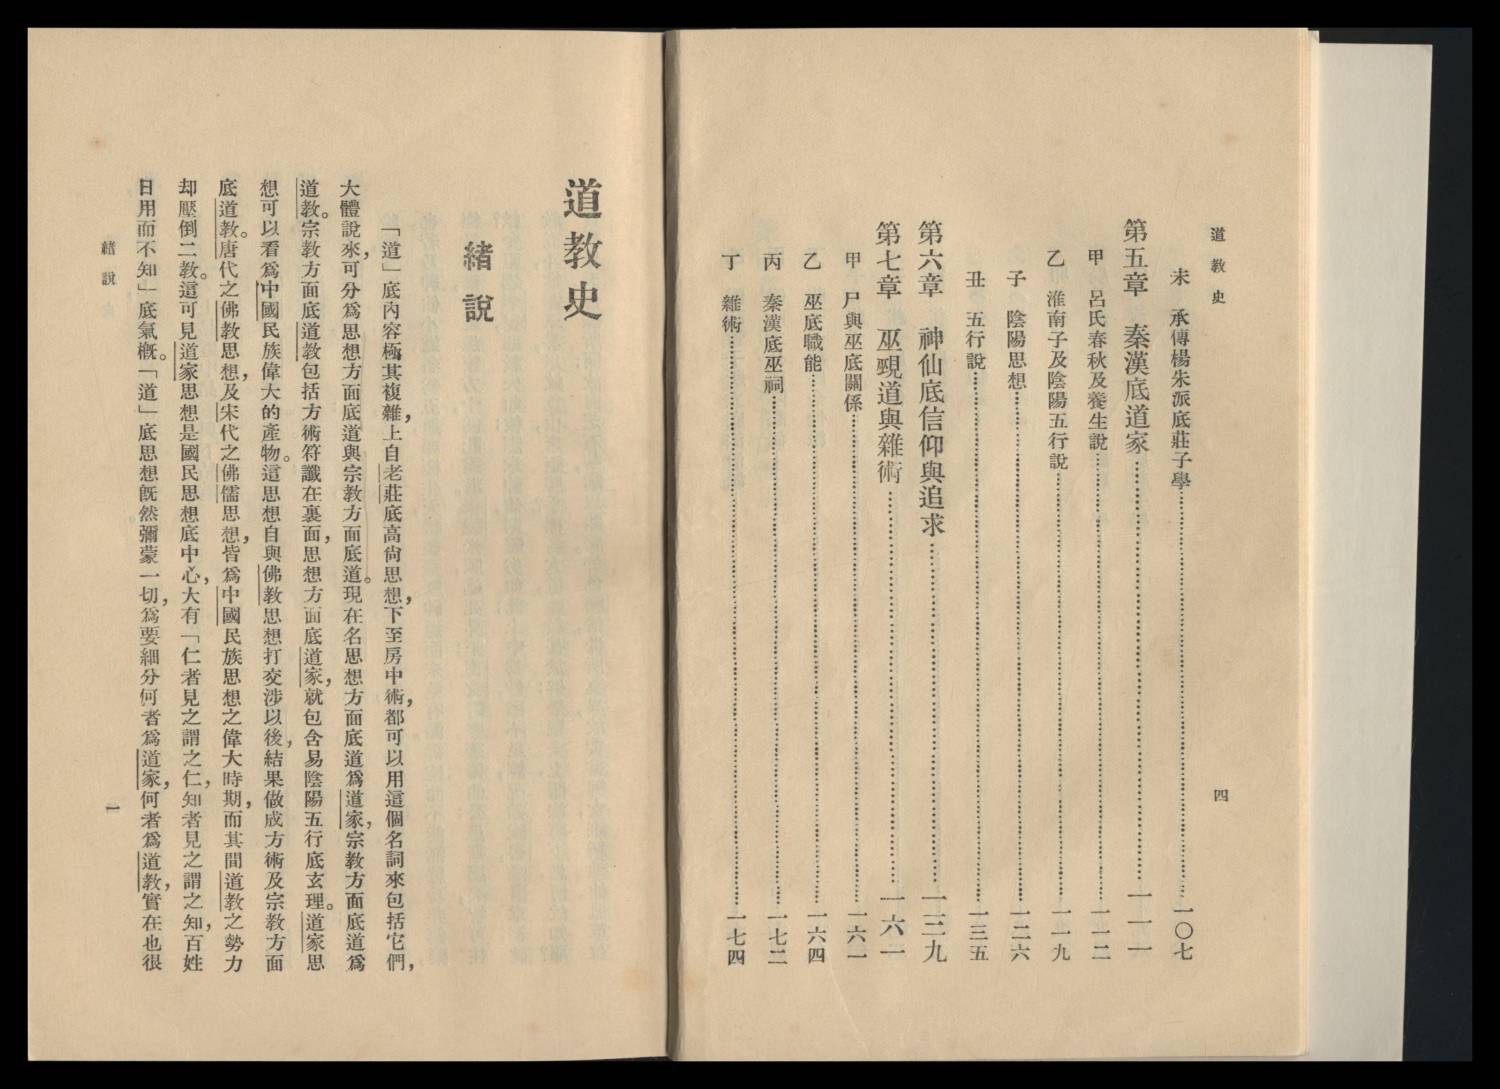 道教史
四
未 承傳楊朱派底莊子學……一〇七
第五章 秦漢底道家……一一一
甲 呂氏春秋及養生說……一一二
乙 淮南子及陰陽五行說……一一九
子 陰陽思想……一二六
丑 五行說……一三五
第六章 神仙底信仰與追求……一三九
第七章 巫覡道與雜術……一六一
甲 尸與巫底關係……一六一
乙 巫底職能……一六四
丙 秦漢底巫祠……一七二
丁 雜術……一七四
道教史
緒說
「道」底內容極其複雜，上自老莊底高尙思想，下至房中術，都可以用這個名詞來包括它們，
大體說來，可分爲思想方面底道與宗教方面底道。現在名思想方面底道爲道家，宗教方面底道爲
道教。宗教方面底道教包括方術符讖在裏面，思想方面底道家，就包含易陰陽五行底玄理。道家思
想可以看爲中國民族偉大的產物。這思想自與佛教思想打交涉以後，結果做成方術及宗教方面
底道教。唐代之佛教思想，及宋代之佛儒思想，皆爲中國民族思想之偉大時期，而其間道教之勢力
却壓倒二教。這可見道家思想是國民思想底中心，大有「仁者見之謂之仁，知者見之謂之知，百姓
日用而不知」底氣概。「道」底思想旣然彌蒙一切，爲要細分何者爲道家，何者爲道教，實在也很
緒說
一